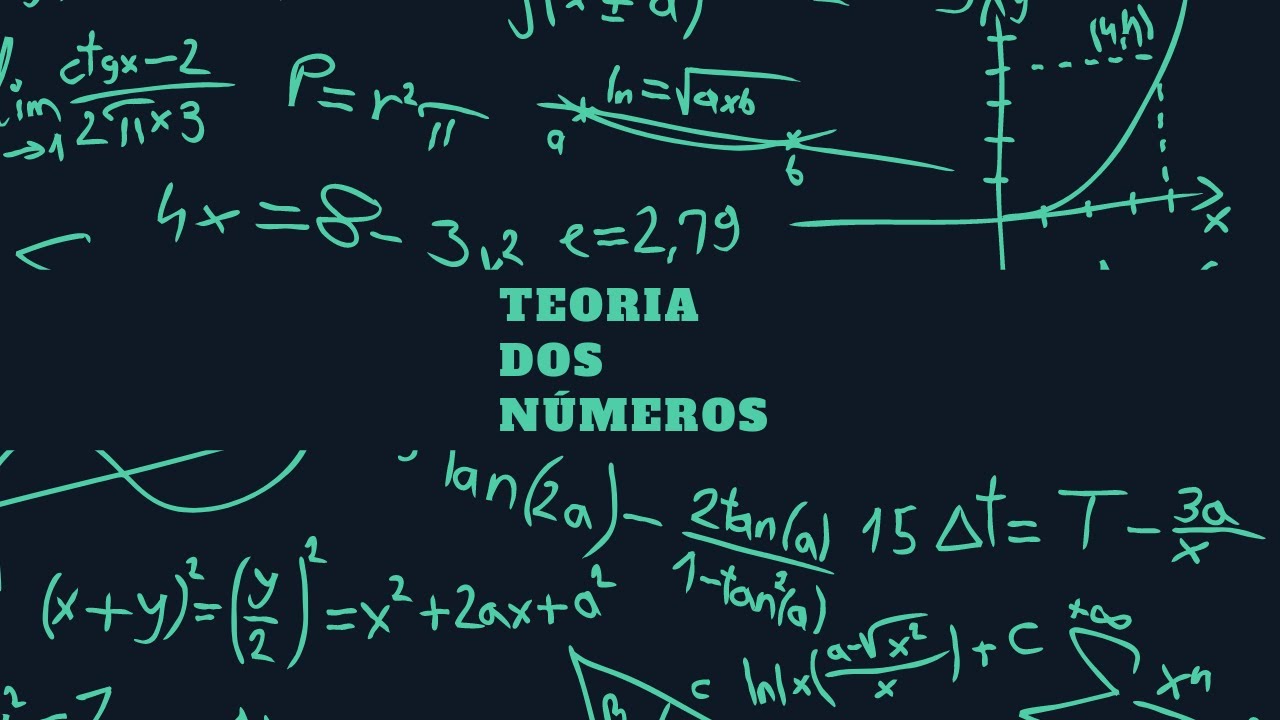 ctgx-2
lim 2π×3
→1
P=r²π
ln=√axb
a
b
(4,h)
y
x
4x=8-
3
e=2,79
TEORIA
DOS
NÚMEROS
tan(2a)- 2tan(a)
1-tan²(a)
15 Δt= T- 3a
x
(x+y)²=(y/2)²=x²+2ax+a²
c
ln|x(a-√x²
x
)+C
+∞
xⁿ